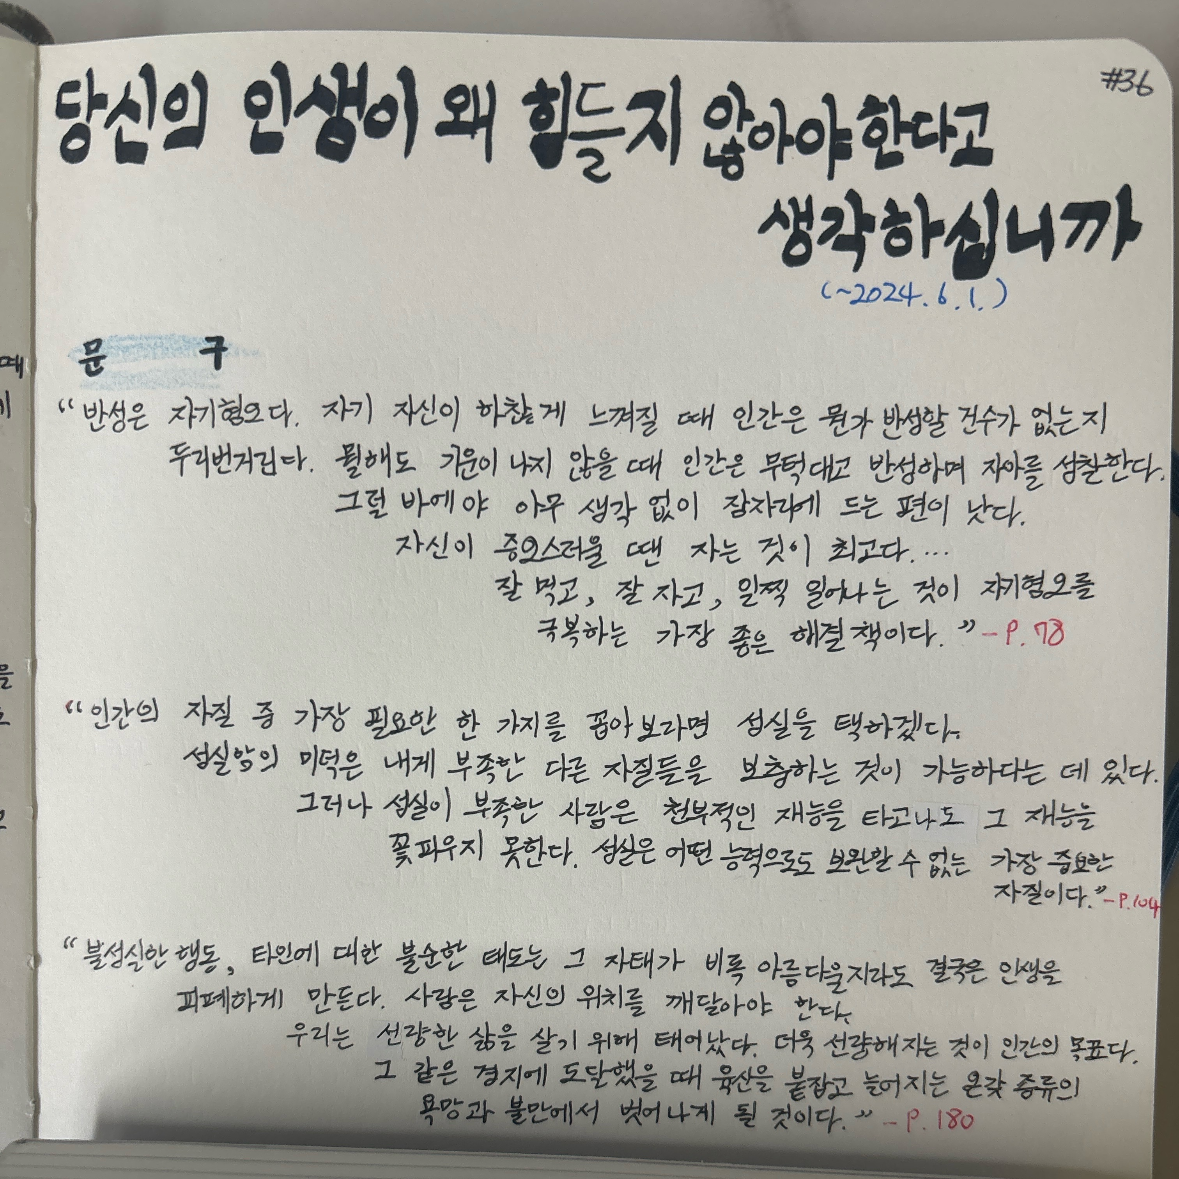 #36
당신의 인생이 왜 힘들지 않아야한다고
생각하십니까
(~2024.6.1.)
문 구
"반성은 자기혐오다. 자기 자신이 하찮게 느껴질 때 인간은 뭔가 반성할 건수가 없는지
두리번거린다. 뭘해도 기운이 나지 않을 때 인간은 무턱대고 반성하며 자아를 성찰한다.
그럴 바에야 아무 생각 없이 잠자리에 드는 편이 낫다.
자신이 증오스러울 땐 자는 것이 최고다....
잘 먹고, 잘 자고, 일찍 일어나는 것이 자기혐오를
극복하는 가장 좋은 해결책이다." -P.78
"인간의 자질 중 가장 필요한 한 가지를 꼽아보라면 성실을 택하겠다.
성실함의 미덕은 내게 부족한 다른 자질들을 보충하는 것이 가능하다는 데 있다.
그러나 성실이 부족한 사람은 천부적인 재능을 타고나도 그 재능을
꽃피우지 못한다. 성실은 어떤 능력으로도 보완할 수 없는 가장 중요한
자질이다." -P.104
"불성실한 행동, 타인에 대한 불순한 태도는 그 자태가 비록 아름다울지라도 결국은 인생을
피폐하게 만든다. 사람은 자신의 위치를 깨달아야 한다.
우리는 선량한 삶을 살기 위해 태어났다. 더욱 선량해지는 것이 인간의 목표다.
그 같은 경지에 도달했을 때 육신을 붙잡고 늘어지는 온갖 종류의
욕망과 불만에서 벗어나게 될 것이다." -P.180
때
을